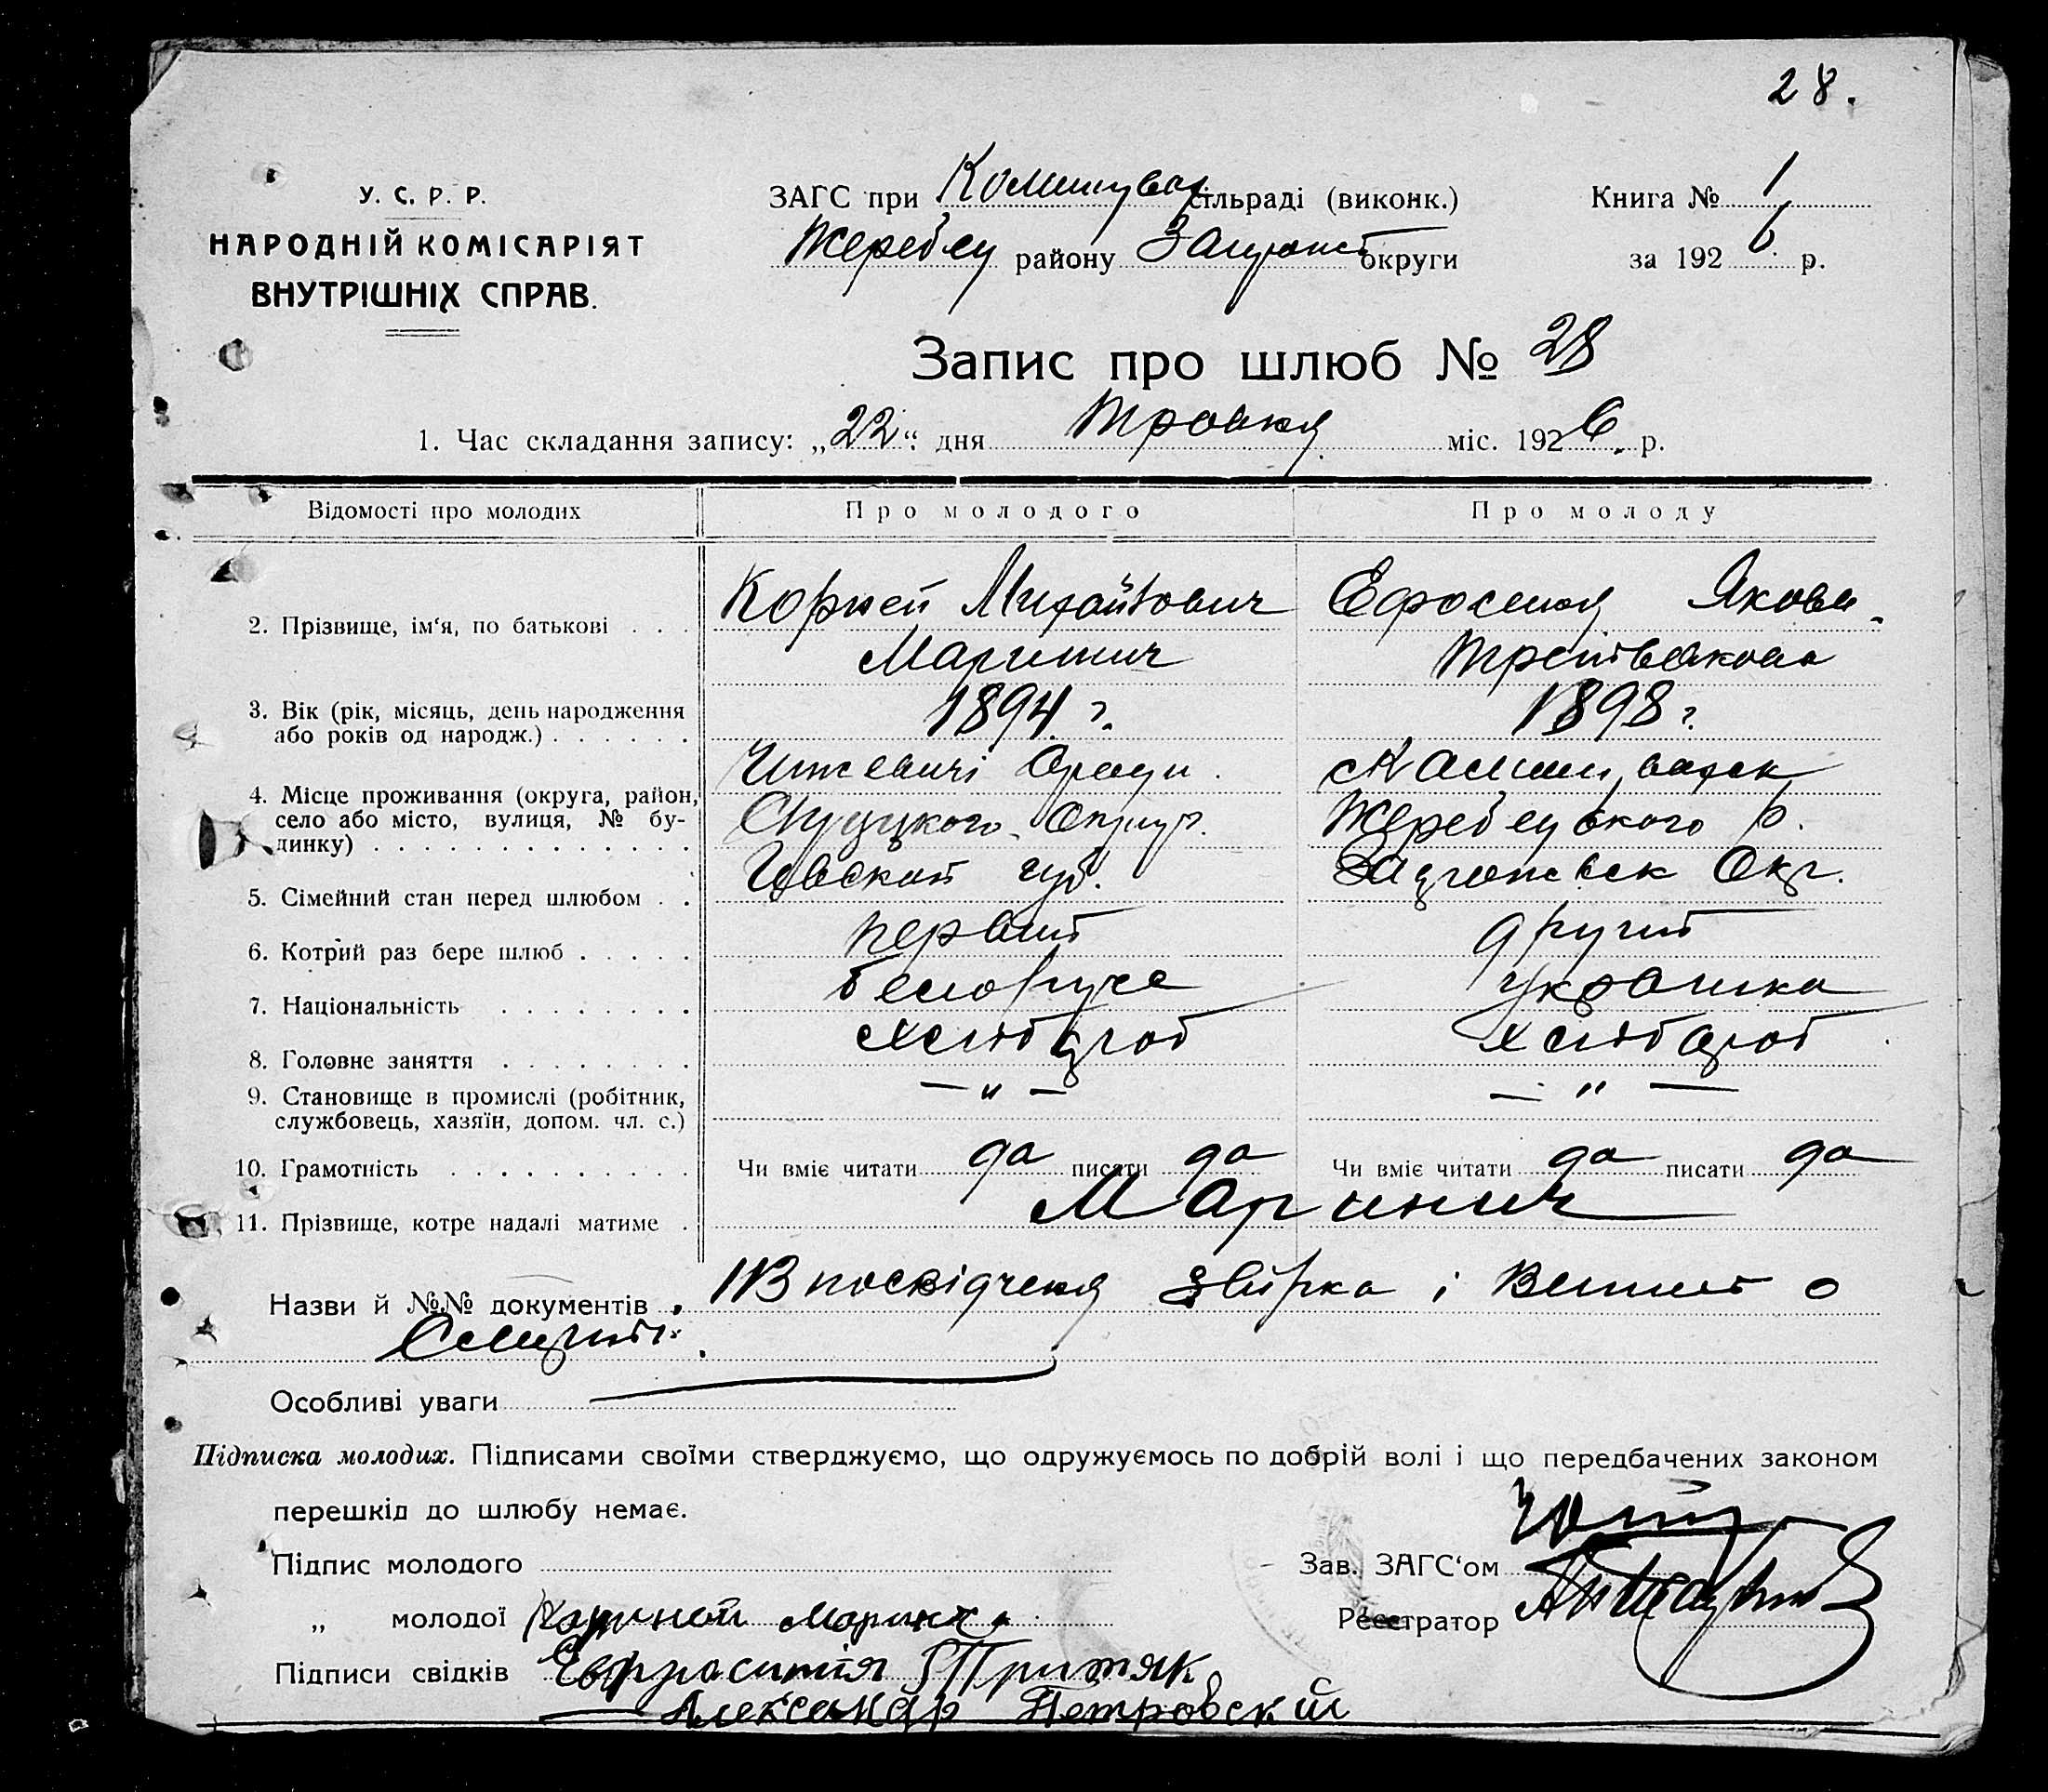 28.
У. С. Р. Р.
НАРОДНІЙ КОМІСАРІЯТ
ВНУТРІШНІХ СПРАВ.
ЗАГС при Комишувах сільраді (виконк.)
Жеребец району Запрожс округи
Книга № 1
за 1926 р.
Запис про шлюб № 28
1. Час складання запису: „22“ дня Травня міс. 1926. р.
Відомості про молодих
Про молодого
Про молоду
2. Прізвище, ім‘я, по батькові . . .
Корней Михайлович
Маринич
Ефросиния Якови.
3. Вік (рік, місяць, день народження
або років од народж.) . . . . . .
1894 г.
1898 г.
4. Місце проживання (округа, район,
село або місто, вулиця, № бу-
динку) . . . . . . . . . . . .
Чижевичі
Слуцкого Округ.
губ.
Жеребецького р.
Окр.
5. Сімейний стан перед шлюбом . .
6. Котрий раз бере шлюб . . . . .
первий
другий
7. Національність . . . . . . . .
белорусс
украинка
8. Головне заняття . . . . . . . .
хлібороб
хлібороб
9. Становище в промислі (робітник,
службовець, хазяїн, допом. чл. с.)
— „ —
— „ —
10. Грамотність . . . . . . . . . .
Чи вміє читати да писати да
Чи вміє читати да писати да
11. Прізвище, котре надалі матиме .
Маринич
Назви й №№ документів .
посвідченя
і о
Особливі уваги
Підписка молодих. Підписами своїми стверджуємо, що одружуємось по добрій волі і що передбачених законом
перешкід до шлюбу немає.
Підпис молодого
„ молодої Корней Маринич
Підписи свідків Евфросиния
Александр Петровский
Зав. ЗАГС‘ом
Реєстратор